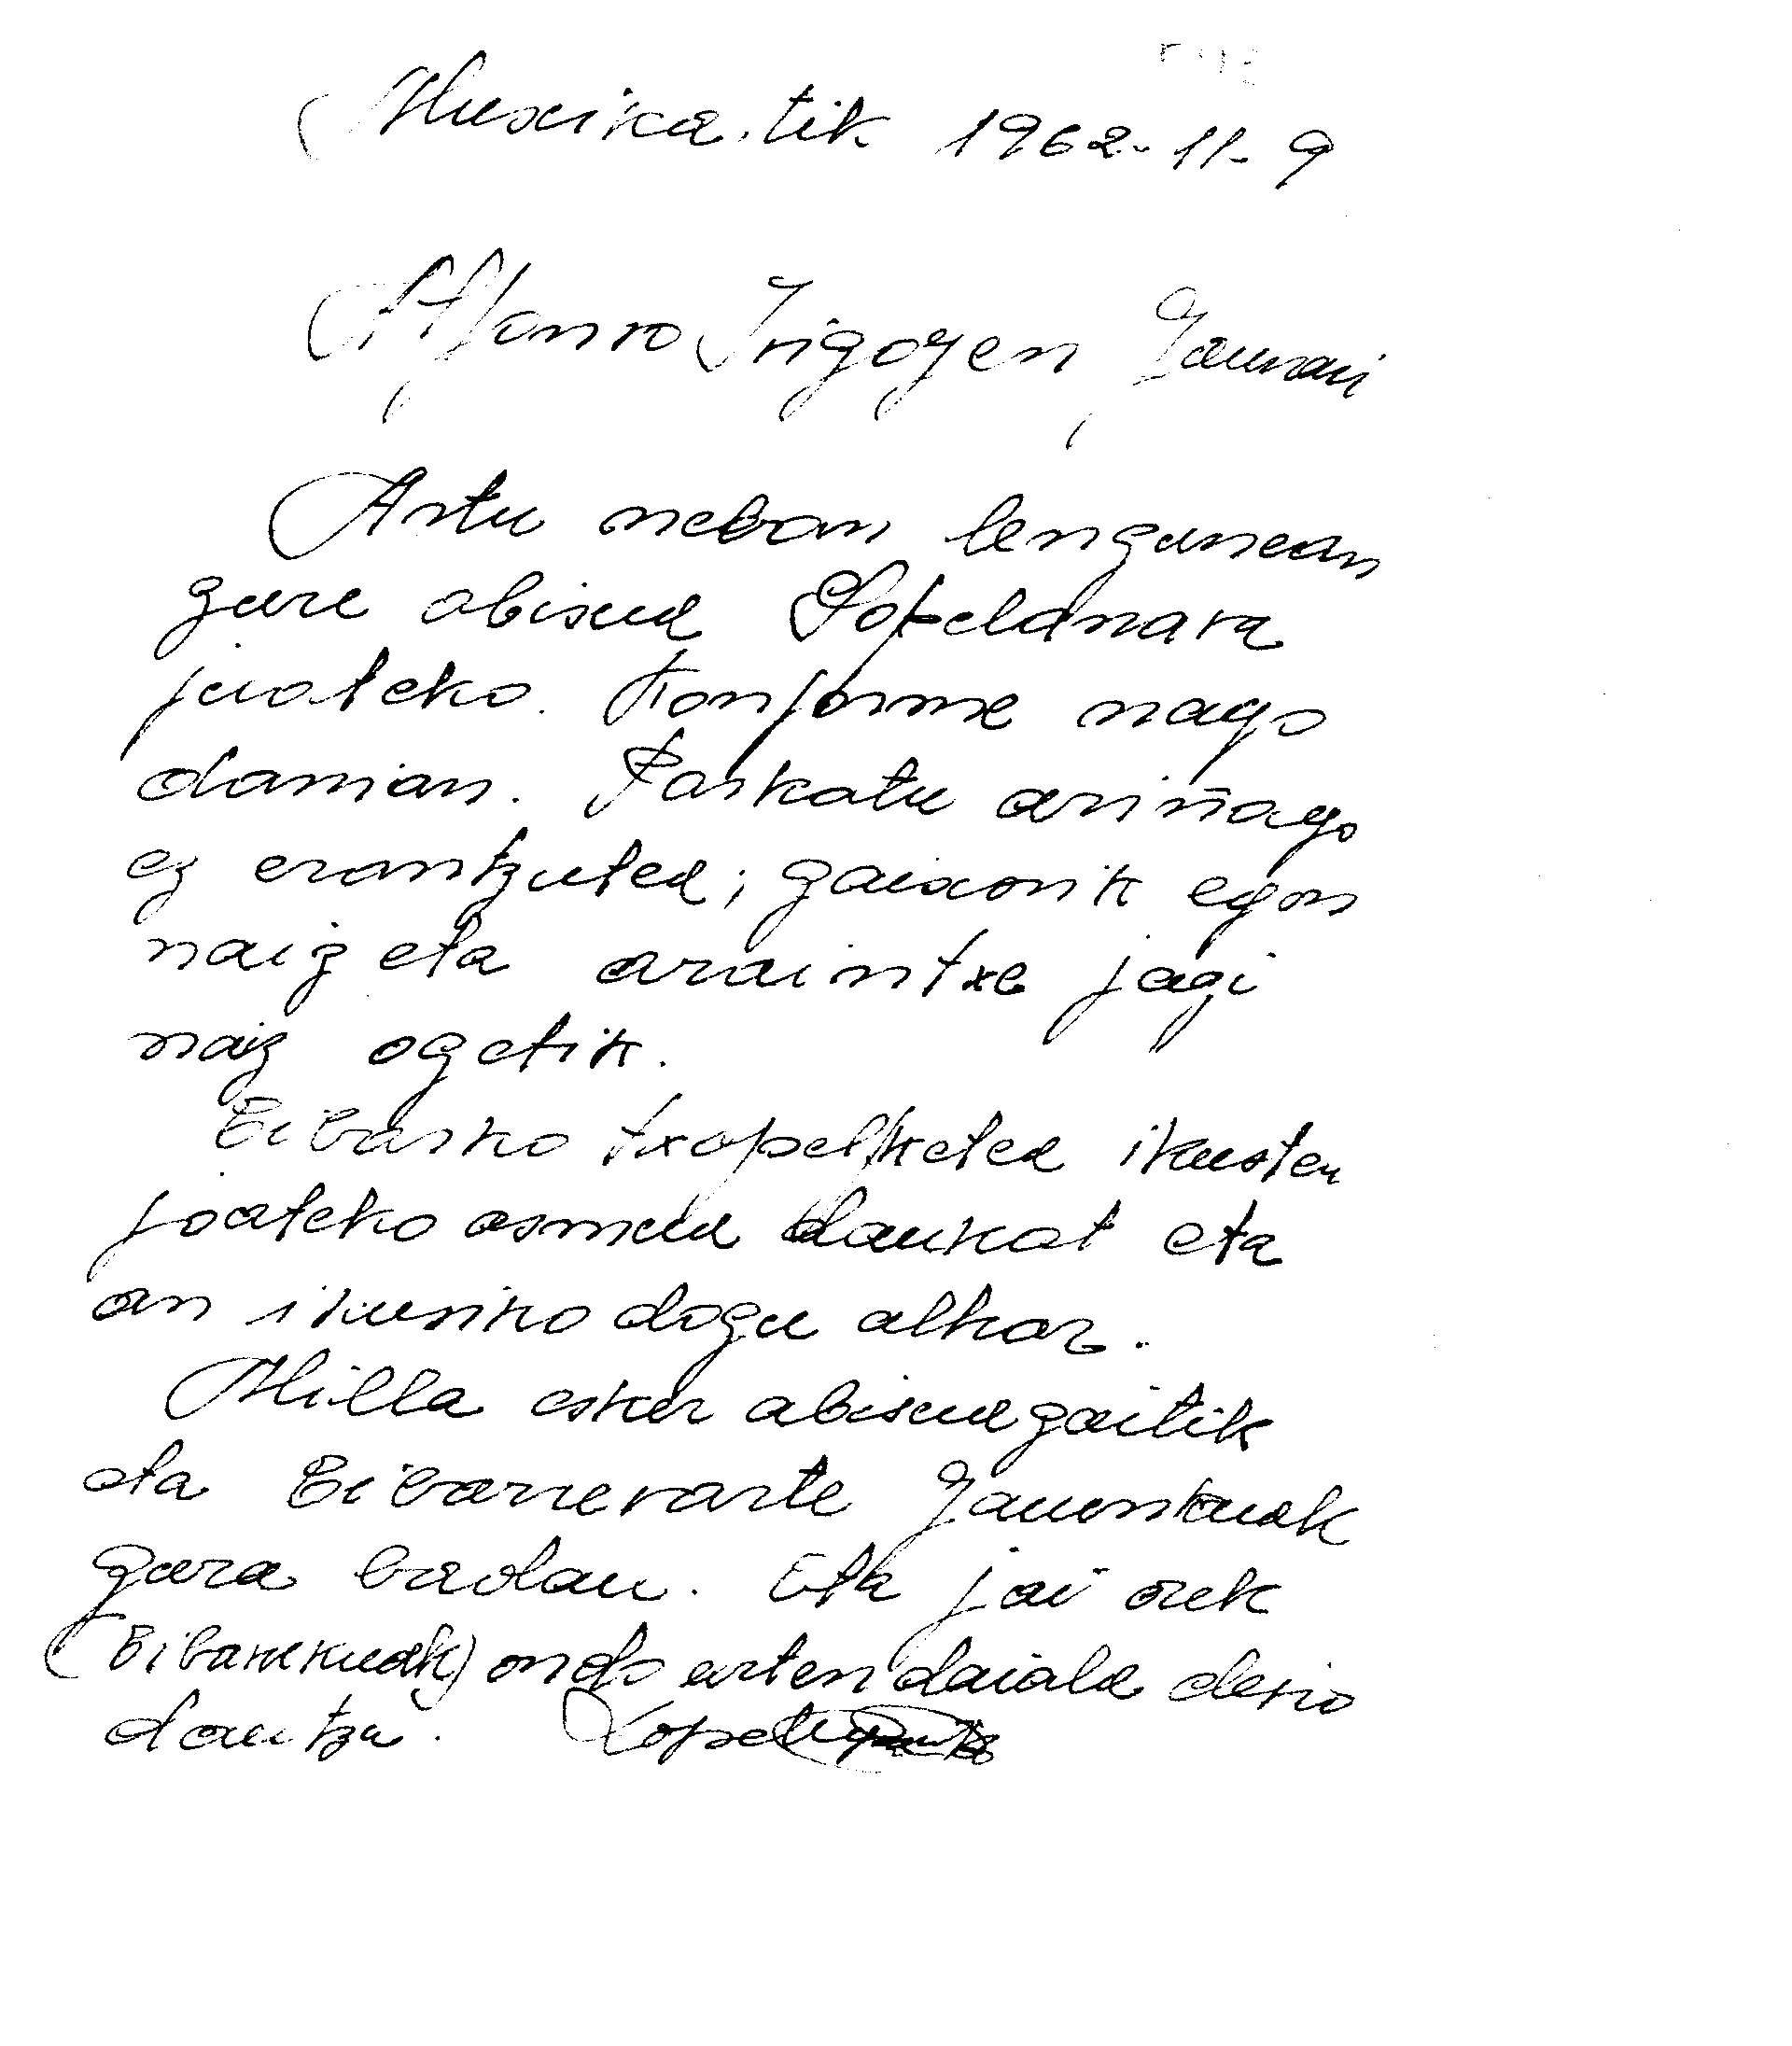 Muxika.tik 1962-11-9
Alfonso Irigoyen Jaunari
Artu neban lengunean
zure abisua Sopelanara
juateko. Konforme nago
danian. Parkatu ariñago
ez erantzutea; gaixorik egon
naiz eta oraintxe jagi
naiz ogetik.
Eibarko txapelketea ikusten
joateko asmua daukat eta
an ikusiko dogu alkar.
Milla esker abisuagaitik
eta Eibarrerarte Jaunskuak
gura badau. Eta jai orek
(Eibarrekuak) ondo urten daiala desio
dautzu. Lopategi